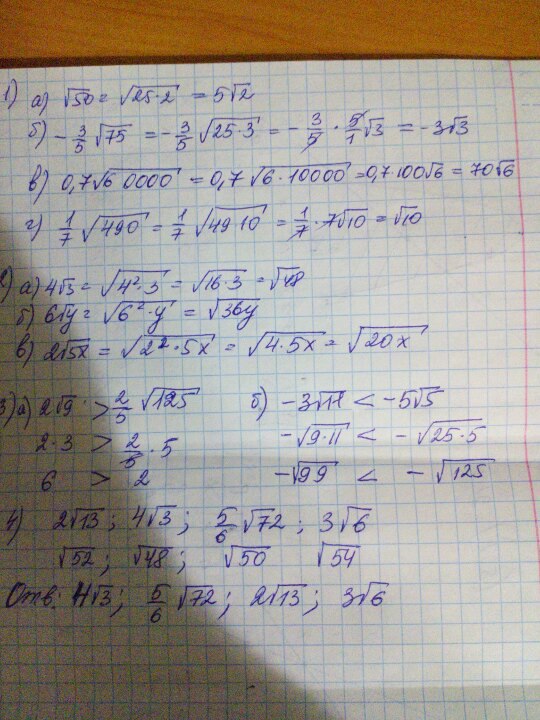 1) а) √50 = √25·2 = 5√2
б) -3/5 √75 = -3/5 √25·3 = -3/5 · 5/1 √3 = -3√3
в) 0,7√60000 = 0,7 √6·10000 = 0,7·100√6 = 70√6
г) 1/7 √490 = 1/7 √49·10 = 1/7 · 7√10 = √10
2) а) 4√3 = √4²·3 = √16·3 = √48
б) 6√y = √6²·y = √36y
в) 2√5x = √2²·5x = √4·5x = √20x
3) а) 2√9 > 2/5 √125 б) -3√11 < -5√5
2·3 > 2/5 · 5 -√9·11 < -√25·5
6 > 2 -√99 < -√125
4) 2√13; 4√3; 5/6 √72; 3√6
√52; √48; √50 √54
Отв: 4√3; 5/6 √72; 2√13; 3√6